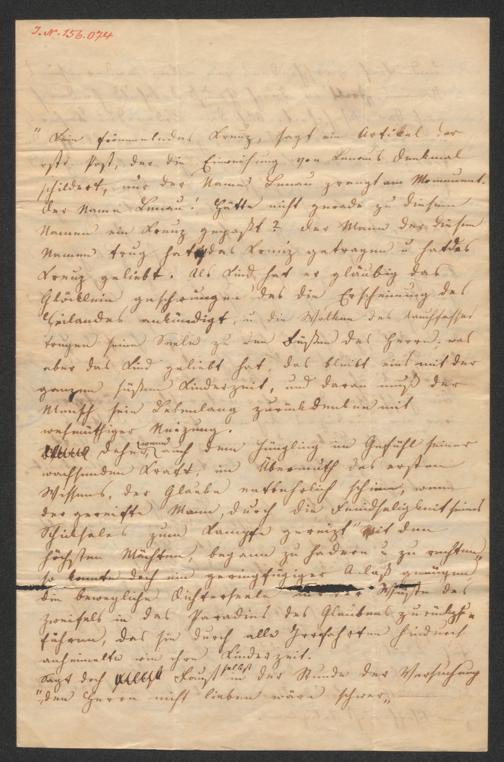 J.N. 156.074
"Kein frömmelndes Kreuz, sagt ein Artikel der
ostr. Post, der die Einweihung von Lenaus Denkmal
schildert, nur der Name Lenau prangt am Monument.
Der Name Lenau! Hätte nicht gerade zu diesem
Namen ein Kreuz gepaßt? Der Mann der diesen
Namen trug hat das Kreuz getragen u hat das
Kreuz geliebt. Als Kind hat er gläubig das
Glöcklein geschwungen das die Erscheinung des
Heilandes ankündigt, u die Wolken des Rauchfasses
trugen seine Seele zu den Füßen des Herrn; was
aber das Kind geliebt hat, das bleibt eins mit der
ganzen süßen Kinderzeit, und daran muß der
Mensch sein Lebenlang zurückdenken mit
wehmüthiger Neigung.
Daher wenn auch dem Jüngling im Gefühl seiner
wachsenden Kraft, im Übermuth des ersten
Wissens, der Glaube entbehrlich schien, wenn
der gereifte Mann, durch die Feindseligkeit seines
Schicksales zum Kampfe gereizt mit den
höchsten Mächten, begann zu hadern u zu rechten,
so konnte doch ein geringfügiger Anlaß genügen,
die bewegliche Dichterseele aus der Wüste des
Zweifels in das Paradies des Glaubens zurückzu-
führen, das sie durch alle Irrfahrten hindurch
anheimelte wie ihre Kinderzeit.
Sagt doch Faust selbst in der Stunde der Versuchung
"den Herrn nicht lieben wäre schwer"